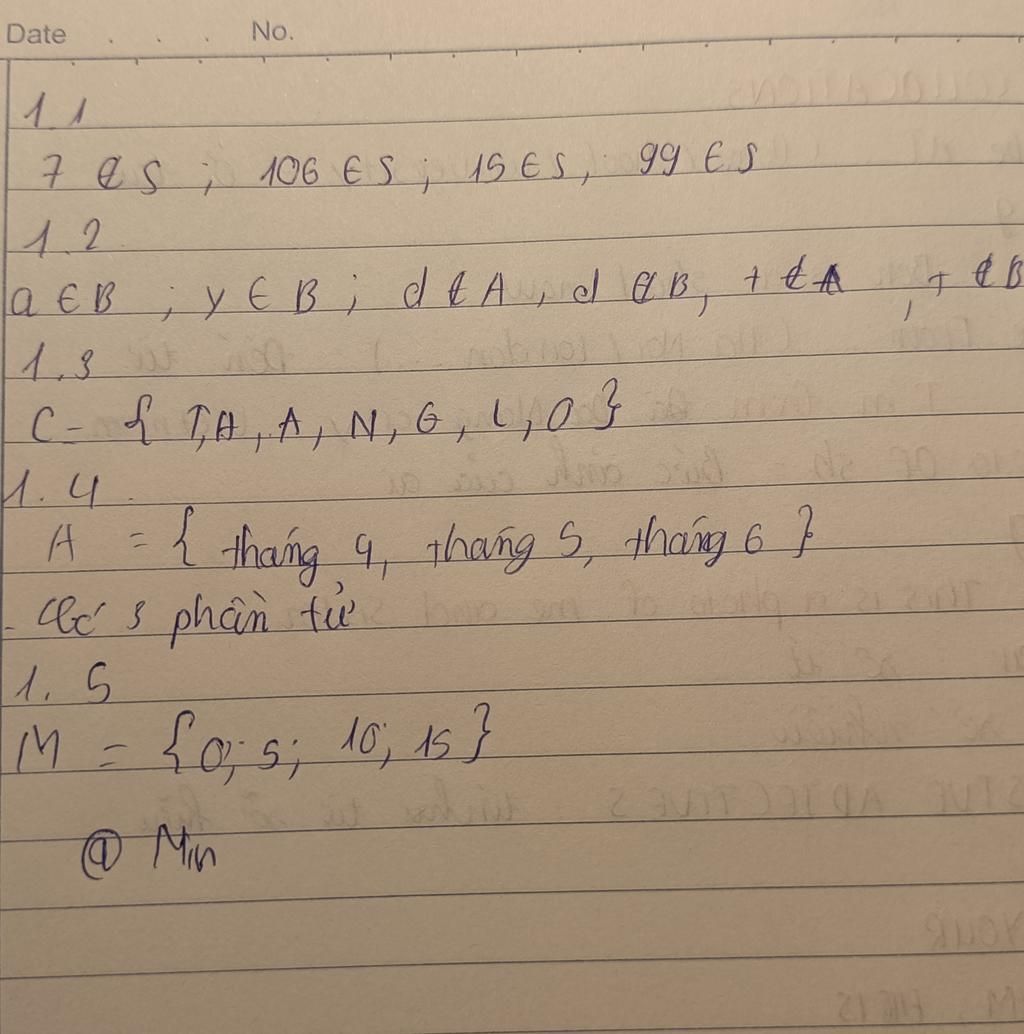 Date . . . No.
1.1
7 ∉ S ; 106 ∈ S ; 15 ∈ S, 99 ∈ S
1.2
a ∈ B ; y ∈ B ; d ∉ A, d ∉ B, + ∉ A , + ∉ B
1.3
C = { T, H, A, N, G, L, O }
1.4
A = { tháng 4, tháng 5, tháng 6 }
- Có 3 phần tử
1.5
M = {0; 5; 10; 15}
@ Min